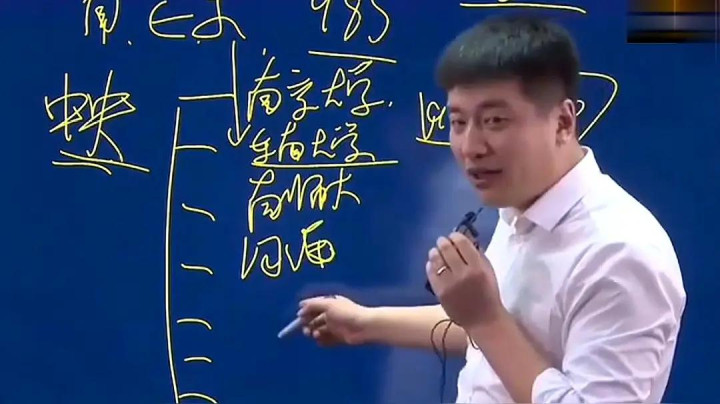 985
中央
南京大学.
东南大学
南师大
河海